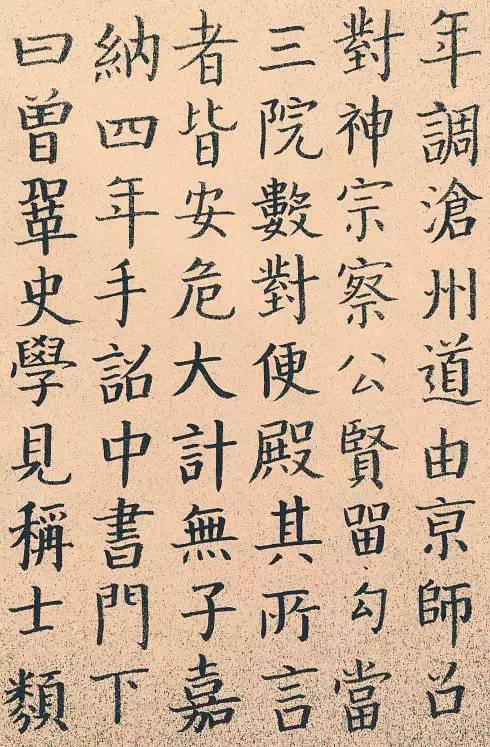 年調滄州道由京師召
對神宗察公賢留勾當
三院數對便殿其所言
者皆安危大計無子嘉
納四年手詔中書門下
曰曾鞏史學見稱士類